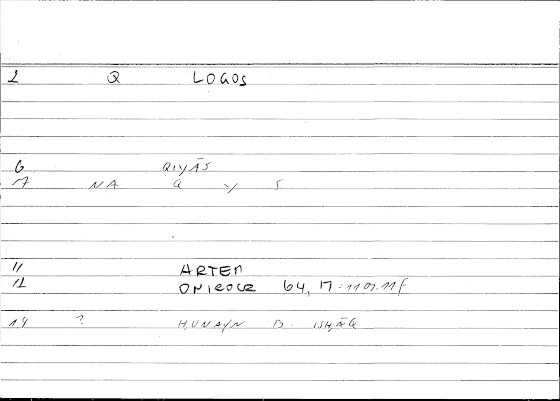 2 Q LOGOS
6 QIYĀS
7 NA Q Y S
11 ARTEM
12 ONIROCR 64, 17 : 1107. 11 f
14 ? ḤUNAYN B. ISḤĀQ